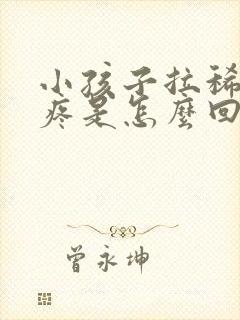 小孩子拉稀
疼是怎麼回
曾永坤